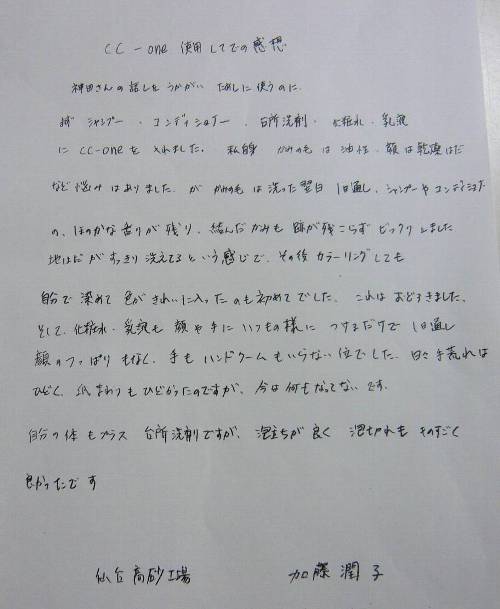 CC-one 使用してでの感想
神田さんの話しをうかがい ためしに使うのに、
まず シャンプー・コンディショナー・台所洗剤・化粧水・乳液
に CC-oneを 入れました。 私自身 かみの毛は 油性、顔は乾燥はだ
など悩みはありました。が かみの毛は洗った翌日 1日通し、シャンプーやコンディショナー
の、ほのかな香りが残り、結んだかみも 跡が残こらず ビックリしました
地はだがすっきり洗えてるという感じで、その後カラーリングしても
自分で染めて 色がきれいに入ったのも初めてでした。 これはおどろきました。
そして、化粧水・乳液も 顔や手に いつもの様に つけるだけで 1日通し
顔のつっぱりもなく、手もハンドクームもいらない位でした。日々手荒れは
ひどく、爪まわりもひどかったのですが、今は何もなってないです。
自分の体もプラス 台所洗剤ですが、泡立ちが良く 泡切れも ものすごく
良かったです
仙台高砂工場 加藤潤子